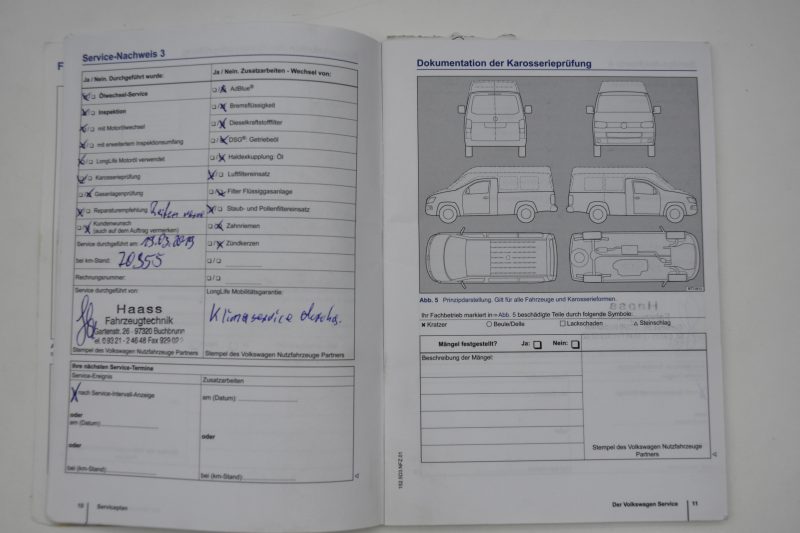 Service-Nachweis 3
Ja / Nein. Durchgeführt wurde:
Ölwechsel-Service
Inspektion
mit Motorölwechsel
mit erweitertem Inspektionsumfang
LongLife Motoröl verwendet
Karosserieprüfung
Gasanlagenprüfung
Reparaturempfehlung
Kundenwunsch
(auch auf dem Auftrag vermerken)
Service durchgeführt am: 19.03.2019
bei km-Stand: 70355
Rechnungsnummer:
Service durchgeführt von:
Haass
Fahrzeugtechnik
Gartenstr. 26 - 97320 Buchbrunn
Tel. 0 93 21 - 2 46 48 Fax 929 02
Stempel des Volkswagen Nutzfahrzeuge Partners
Ja / Nein. Zusatzarbeiten - Wechsel von:
AdBlue®
Bremsflüssigkeit
Dieselkraftstofffilter
DSG® Getriebeöl
Haldexkupplung: Öl
Luftfiltereinsatz
Filter Flüssiggasanlage
Staub- und Pollenfiltereinsatz
Zahnriemen
Zündkerzen
LongLife Mobilitätsgarantie:
Klimaservice
Stempel des Volkswagen Nutzfahrzeuge Partners
Ihre nächsten Service-Termine
Service-Ereignis
nach Service-Intervall-Anzeige
oder
am (Datum)
oder
bei (km-Stand)
Zusatzarbeiten
am (Datum)
oder
bei (km-Stand)
10 Serviceplan
Dokumentation der Karosserieprüfung
Abb. 5 Prinzipdarstellung. Gilt für alle Fahrzeuge und Karosserieformen.
Ihr Fachbetrieb markiert in ⇒ Abb. 5 beschädigte Teile durch folgende Symbole:
x Kratzer ○ Beule/Delle □ Lackschaden △ Steinschlag
Mängel festgestellt? Ja: Nein:
Beschreibung der Mängel:
Stempel des Volkswagen Nutzfahrzeuge
Partners
Der Volkswagen Service 11